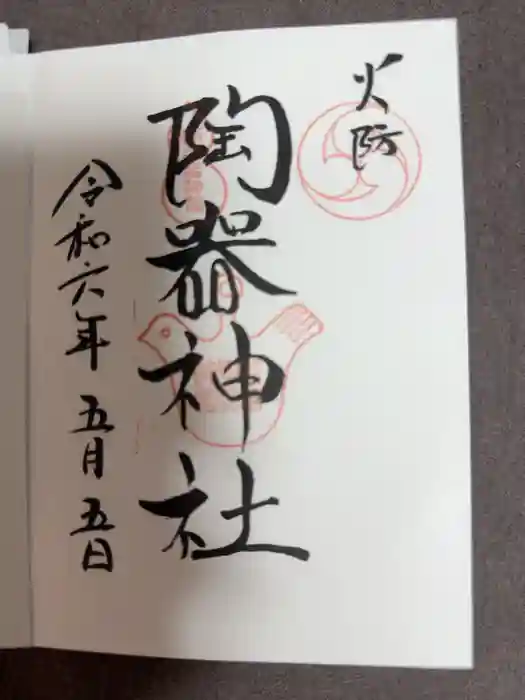 火防
陶器神社
令和六年 五月五日